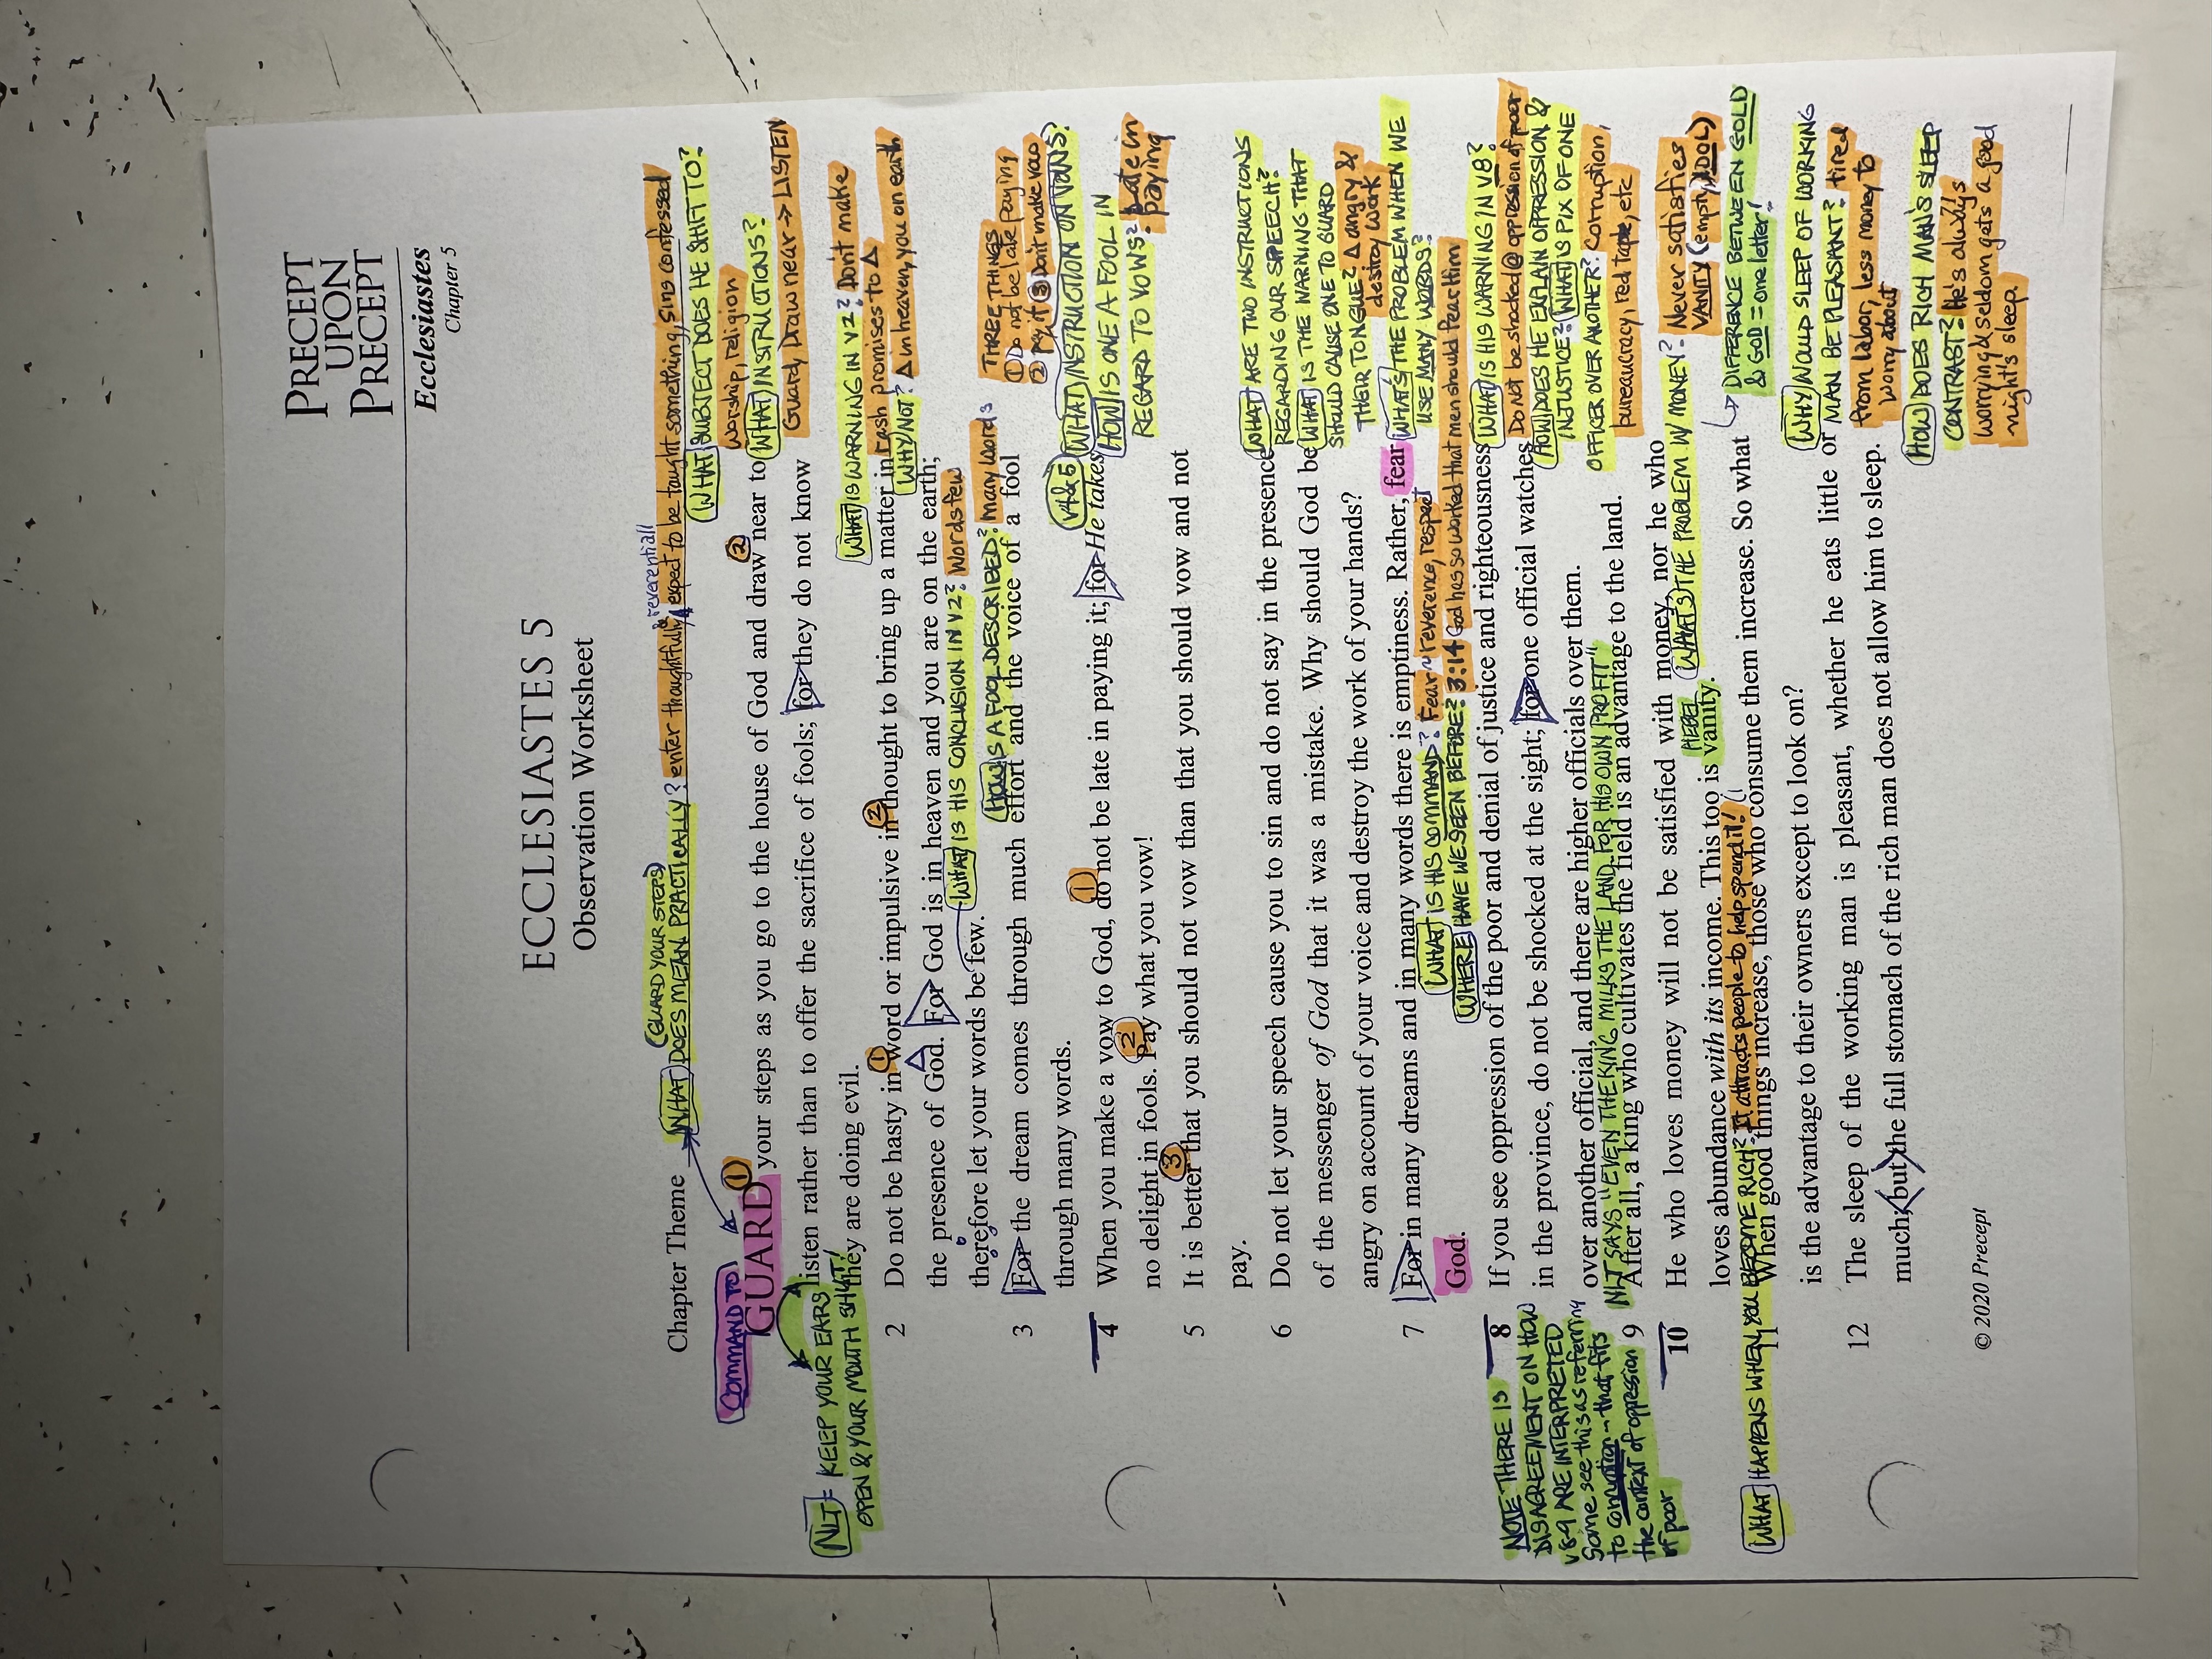 PRECEPT
UPON
PRECEPT
Ecclesiastes
Chapter 5
ECCLESIASTES 5
Observation Worksheet
reverential
(GUARD YOUR STEPS)
Chapter Theme
WHAT DOES MEAN PRACTICALLY? enter thoughtfully & expect to be taught something, sins confessed
WHAT SUBJECT DOES HE SHIFT TO?
worship, religion
COMMAND TO
GUARD ① your steps as you go to the house of God and ② draw near to
WHAT INSTRUCTIONS?
Guard, Draw near → LISTEN
listen rather than to offer the sacrifice of fools; for they do not know
they are doing evil.
NLT = KEEP YOUR EARS
OPEN & YOUR MOUTH SHUT!
WHAT IS WARNING IN V2? Don't make
rash promises to △
WHY NOT? △ in heaven, you on earth
2 Do not be hasty in ① word or impulsive in ② thought to bring up a matter in
the presence of God. For God is in heaven and you are on the earth;
therefore let your words be few.
WHAT IS HIS CONCLUSION IN V2? Words few
HOW IS A FOOL DESCRIBED? many words
3 For the dream comes through much effort and the voice of a fool
through many words.
THREE THINGS
① Do not be late paying
② pay it ③ Don't make vow
V4&5 WHAT INSTRUCTION ON VOWS?
HOW IS ONE A FOOL IN
REGARD TO VOWS? Late in
paying
4 When you make a vow to God, ① do not be late in paying it; for He takes
no delight in fools. ② Pay what you vow!
5 It is better ③ that you should not vow than that you should vow and not
pay.
WHAT ARE TWO INSTRUCTIONS
REGARDING OUR SPEECH?
WHAT IS THE WARNING THAT
SHOULD CAUSE ONE TO GUARD
THEIR TONGUE? △ angry &
destroy work
6 Do not let your speech cause you to sin and do not say in the presence
of the messenger of God that it was a mistake. Why should God be
angry on account of your voice and destroy the work of your hands?
WHAT'S THE PROBLEM WHEN WE
USE MANY WORDS?
7 For in many dreams and in many words there is emptiness. Rather, fear
God.
WHAT IS HIS COMMAND? Fear ~ reverence, respect
WHERE HAVE WE SEEN BEFORE? 3:14 God has so worked that men should fear Him
WHAT IS HIS WARNING IN V8?
Do not be shocked @ oppression of poor
HOW DOES HE EXPLAIN OPPRESSION &
INJUSTICE? WHAT IS PIX OF ONE
OFFICER OVER ANOTHER? Corruption,
bureaucracy, red tape, etc
8 If you see oppression of the poor and denial of justice and righteousness
in the province, do not be shocked at the sight; for one official watches
over another official, and there are higher officials over them.
NLT SAYS "EVEN THE KING MILKS THE LAND FOR HIS OWN PROFIT"
9 After all, a king who cultivates the field is an advantage to the land.
NOTE THERE IS
DISAGREEMENT ON HOW
V8-9 ARE INTERPRETED
Some see this as referring
to corruption - that fits
the context of oppression
of poor
10 He who loves money will not be satisfied with money, nor he who
loves abundance with its income. This too is vanity.
HEBEL
WHAT'S THE PROBLEM W/ MONEY? Never satisfies
VANITY (empty, IDOL)
DIFFERENCE BETWEEN GOLD
& GOD = one letter!
WHAT HAPPENS WHEN YOU BECOME RICH? It attracts people to help spend it!
11 When good things increase, those who consume them increase. So what
is the advantage to their owners except to look on?
WHY WOULD SLEEP OF WORKING
MAN BE PLEASANT? tired
from labor, less money to
worry about
12 The sleep of the working man is pleasant, whether he eats little or
much; but the full stomach of the rich man does not allow him to sleep.
HOW DOES RICH MAN'S SLEEP
CONTRAST? He's always
worrying & seldom gets a good
night's sleep.
© 2020 Precept